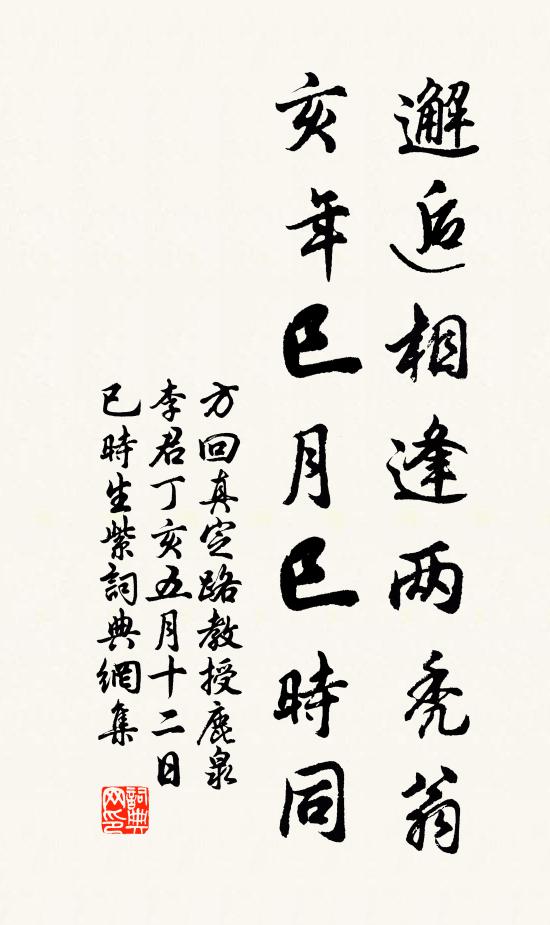 邂逅相逢两秃翁
亥年巳月巳時同
方回真定路教授鹿泉
李君丁亥五月十二日
巳時生紫詞典網集
詞典
网印